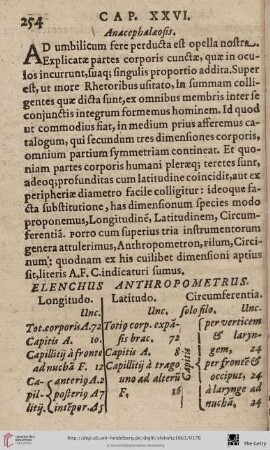 254
CAP. XXVI.
Anacephalaeosis.
AD umbilicum fere perducta est opella nostra.
Explicatæ partes corporis cunctæ, quæ in ocu-
los incurrunt, suaq; singulis proportio addita. Super
est, ut more Rhetoribus usitato, in summam colli-
gentes quæ dicta sunt, ex omnibus membris inter se
conjunctis integrum formemus hominem. Id quod
ut commodius fiat, in medium prius afferemus ca-
talogum, qui secundum tres dimensiones corporis,
omnium partium symmetriam contineat. Et quo-
niam partes corporis humani pleræq; teretes sunt,
adeoq; profunditas cum latitudine coincidit, aut ex
peripheriæ diametro facile colligitur: ideoque fa-
cta substitutione, has dimensionum species modo
proponemus, Longitudinē, Latitudinem, Circum-
ferentiā. Porro cum superius tria instrumentorum
genera attulerimus, Anthropometron, Filum, Circi-
num: quodnam ex his cuilibet dimensioni aptius
sit, literis A. F. C. indicaturi sumus.
ELENCHUS ANTHROPOMETRUS.
Longitudo. Latitudo. Circumferentia.
Unc. Unc. solo filo. Unc.
Tot. corporis A. 72 Totiq corp. expā- per verticem
Capitis A. 10. sis brac. 72 & laryn-
Capillitij à fronte Capitis A. 8 gem, 24
ad nuchā F. 12 Capillitij à trago per frontē &
Ca- anterio A. 2 uno ad alterū Capitis occiput, 24
pil- posterio A. 7 F, 16 à larynge ad
litij. interper. A 5 nuchā, 24
http://digi.ub.uni-heidelberg.de/diglit/elsholtz1663/0176
© Universitätsbibliothek Heidelberg
The Getty